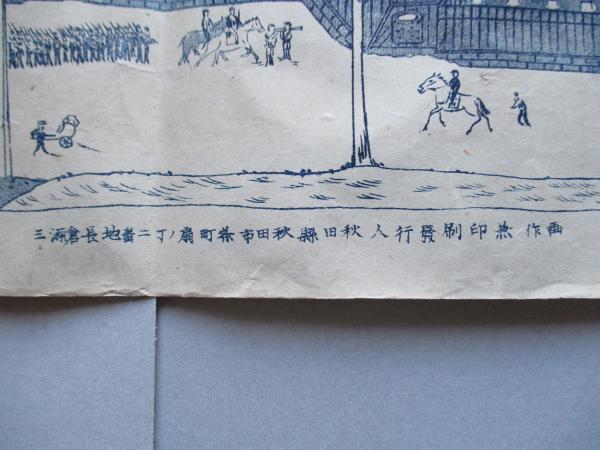 画作兼印刷發行人秋田縣秋田市茶町扇ノ丁二番地長倉源三